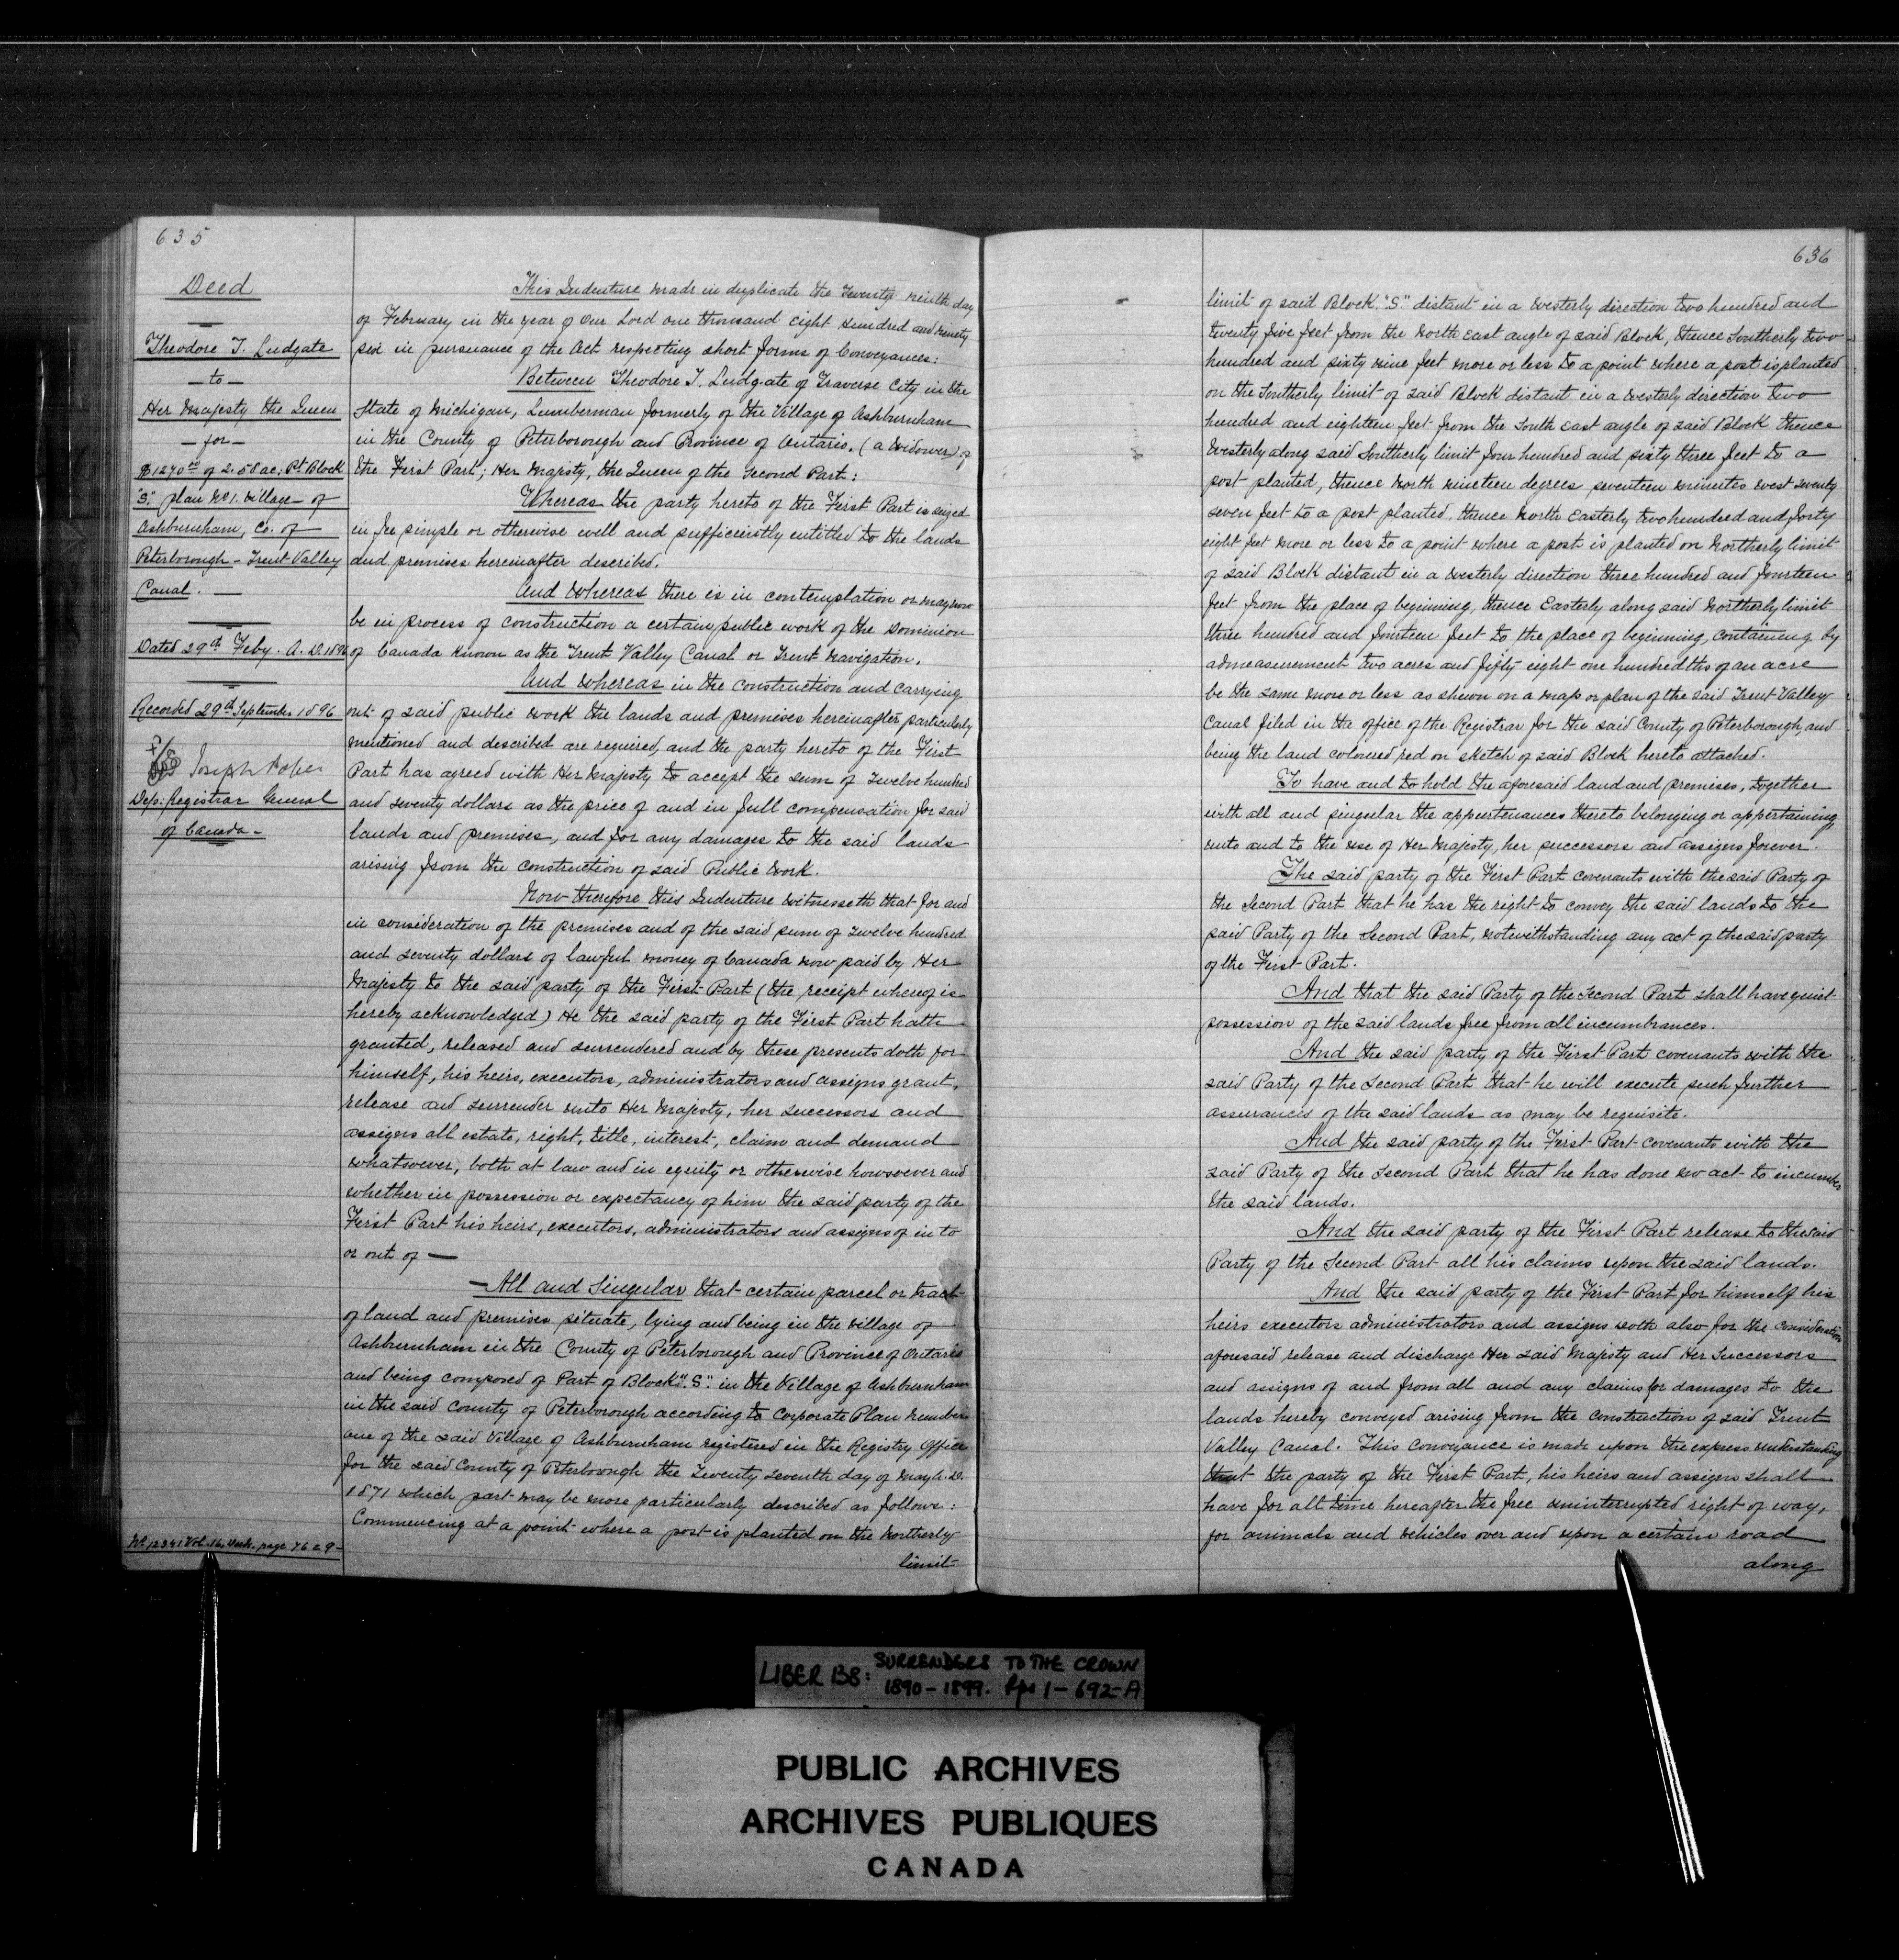 635
Deed
Theodore T. Ludgate
- to -
Her Majesty the Queen
- for -
$1270.00 of 2.58 ac; Pt Block
"S." plan No 1. Village of
Ashburnham, Co. of
Peterborough - Trent Valley
Canal. -
Dated 29th Feby. A.D. 1896
Recorded 29th September 1896
Joseph Pope
Dep: Registrar General
of Canada -
No 12341 Vol. 16, page 7629 -
This Indenture made in duplicate the Twenty ninth day
of February in the year of Our Lord one thousand eight hundred and ninety
six in pursuance of the Act respecting short forms of Conveyances:
Between Theodore T. Ludgate of Traverse City in the
State of Michigan, Lumberman formerly of the Village of Ashburnham
in the County of Peterborough and Province of Ontario. (a widower) of
the First Part; Her Majesty, the Queen of the Second Part:
Whereas the party hereto of the First Part is seized
in fee simple or otherwise well and sufficiently entitled to the lands
and premises hereinafter described.
And whereas there is in contemplation or may now
be in process of construction a certain public work of the Dominion
of Canada known as the Trent Valley Canal or Trent Navigation.
And whereas in the construction and carrying
out of said public work the lands and premises hereinafter particularly
mentioned and described are required, and the party hereto of the First
Part has agreed with Her Majesty to accept the sum of Twelve hundred
and seventy dollars as the price of and in full compensation for said
lands and premises, and for any damages to the said lands
arising from the construction of said Public Work.
Now therefore this Indenture witnesseth that for and
in consideration of the premises and of the said sum of Twelve hundred
and seventy dollars of lawful money of Canada now paid by Her
Majesty to the said party of the First Part (the receipt whereof is
hereby acknowledged) He the said party of the First Part hath
granted, released and surrendered and by these presents doth for
himself, his heirs, executors, administrators and assigns grant,
release and surrender unto Her Majesty, her successors and
assigns all estate, right, title, interest, claim and demand
whatsoever, both at law and in equity or otherwise howsoever and
whether in possession or expectancy of him the said party of the
First Part his heirs, executors, administrators and assigns of in to
or out of -
- All and Singular that certain parcel or tract
of land and premises situate, lying and being in the Village of
Ashburnham in the County of Peterborough and Province of Ontario
and being composed of Part of Block "S." in the Village of Ashburnham
in the said County of Peterborough according to Corporate Plan number
one of the said Village of Ashburnham registered in the Registry Office
for the said County of Peterborough the Twenty seventh day of May A.D.
1871 which part may be more particularly described as follows:
Commencing at a point where a post is planted on the Northerly
limit
636
limit of said Block "S." distant in a westerly direction two hundred and
twenty five feet from the North East angle of said Block, thence Southerly two
hundred and sixty nine feet more or less to a point where a post is planted
on the Southerly limit of said Block distant in a westerly direction two
hundred and eighteen feet from the South East angle of said Block thence
Westerly along said Southerly limit four hundred and sixty three feet to a
post planted, thence North nineteen degrees seventeen minutes west seventy
seven feet to a post planted, thence North Easterly two hundred and forty
eight feet more or less to a point where a post is planted on Northerly limit
of said Block distant in a westerly direction three hundred and fourteen
feet from the place of beginning, thence Easterly along said Northerly limit
three hundred and fourteen feet to the place of beginning, containing by
admeasurement two acres and fifty eight one hundredths of an acre
be the same more or less as shewn on a map or plan of the said Trent Valley
Canal filed in the office of the Registrar for the said County of Peterborough, and
being the land coloured red on sketch of said Block hereto attached.
To have and to hold the aforesaid land and premises, together
with all and singular the appurtenances thereto belonging or appertaining
unto and to the use of Her Majesty, her successors and assigns forever.
The said party of the First Part covenants with the said Party of
the Second Part that he has the right to convey the said lands to the
said Party of the Second Part, notwithstanding any act of the said party
of the First Part.
And that the said Party of the Second Part shall have quiet
possession of the said lands free from all incumbrances.
And the said party of the First Part covenants with the
said Party of the Second Part that he will execute such further
assurances of the said lands as may be requisite.
And the said party of the First Part covenants with the
said Party of the Second Part that he has done no act to incumber
the said lands.
And the said party of the First Part release to the said
Party of the Second Part all his claims upon the said lands.
And the said party of the First Part for himself his
heirs executors administrators and assigns doth also for the consideration
aforesaid release and discharge Her said Majesty and Her Successors
and assigns of and from all and any claims for damages to the
lands hereby conveyed arising from the construction of said Trent
Valley Canal. This Conveyance is made upon the express understanding
that the party of the First Part, his heirs and assigns shall
have for all time hereafter the free uninterrupted right of way,
for animals and vehicles over and upon a certain road
along
LIBER 138: SURRENDERS TO THE CROWN
1890 - 1899. fps 1 - 692-A
PUBLIC ARCHIVES
ARCHIVES PUBLIQUES
CANADA